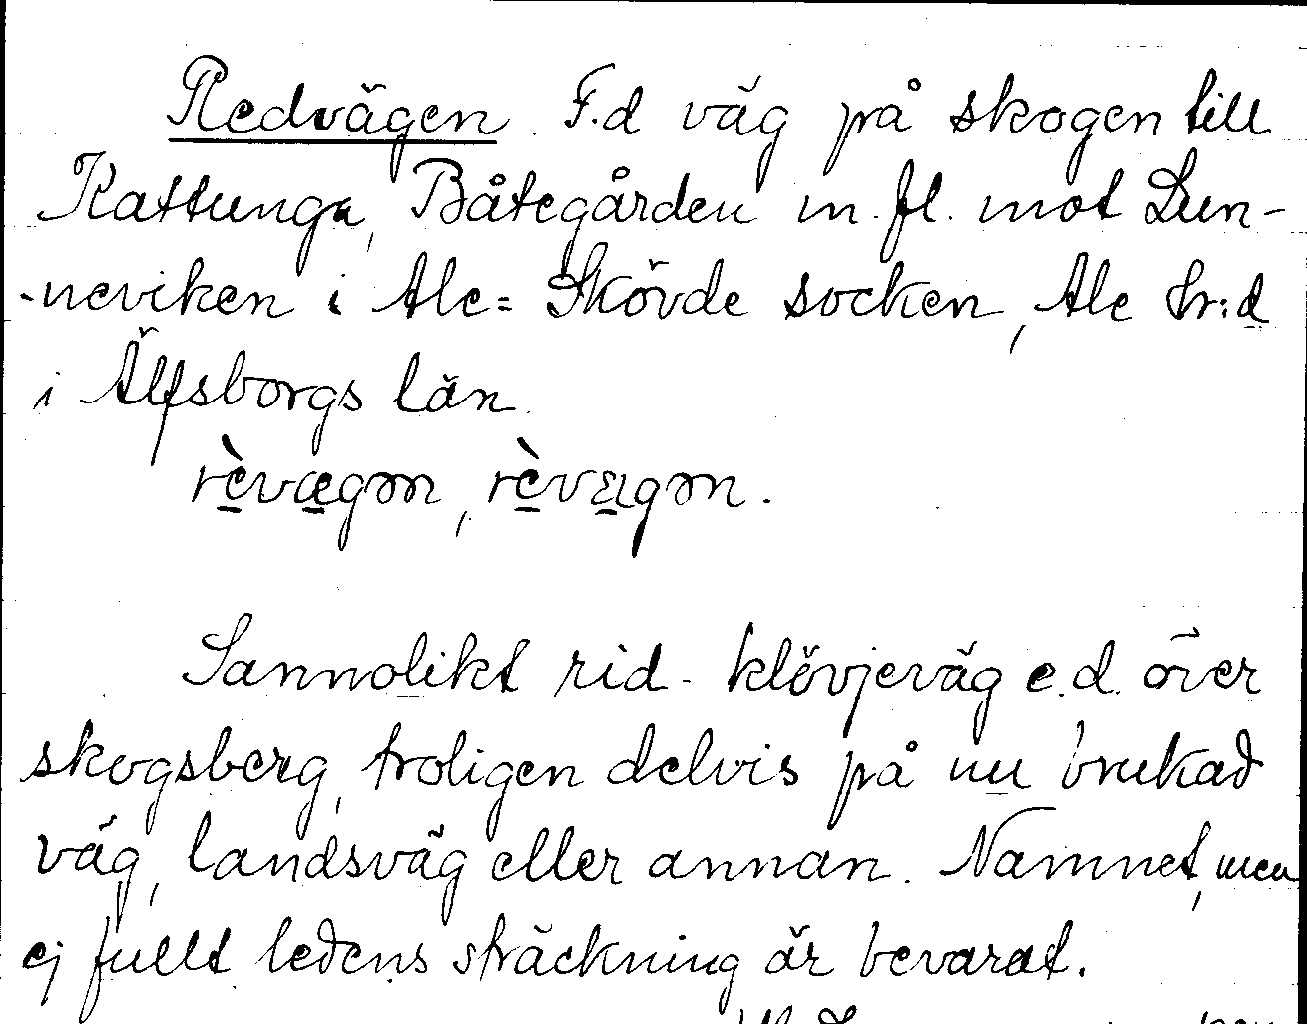 Redvägen F.d väg på skogen till
Kattunga, Båtegården m.fl. mot Lun-
-neviken i Ale= Skövde socken, Ale hr:d
i Älfsborgs län.
rèvægən, rèvægən.
Sannolikt rid- klövjeväg e.d. över
skogsberg, troligen delvis på nu brukad
väg, landsväg eller annan. Namnet, men
ej fullt ledens sträckning är bevarat.